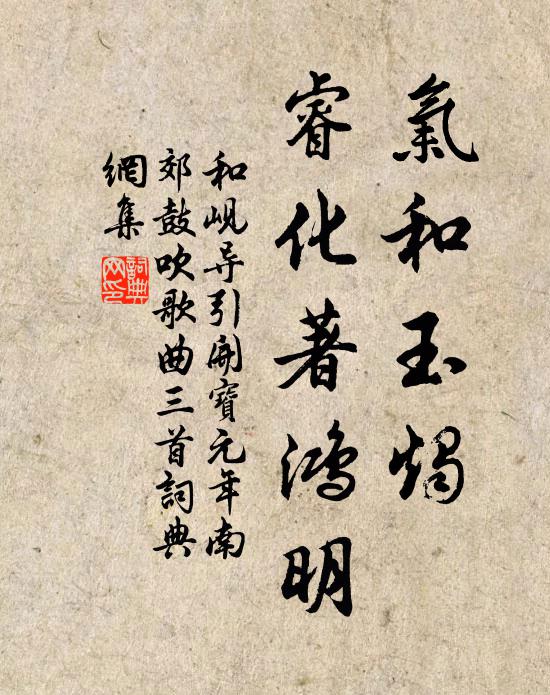 氣和玉燭
睿化著鴻明
和峴导引開寶元年南
郊鼓吹歌曲三首詞典
網集
詞典
网印